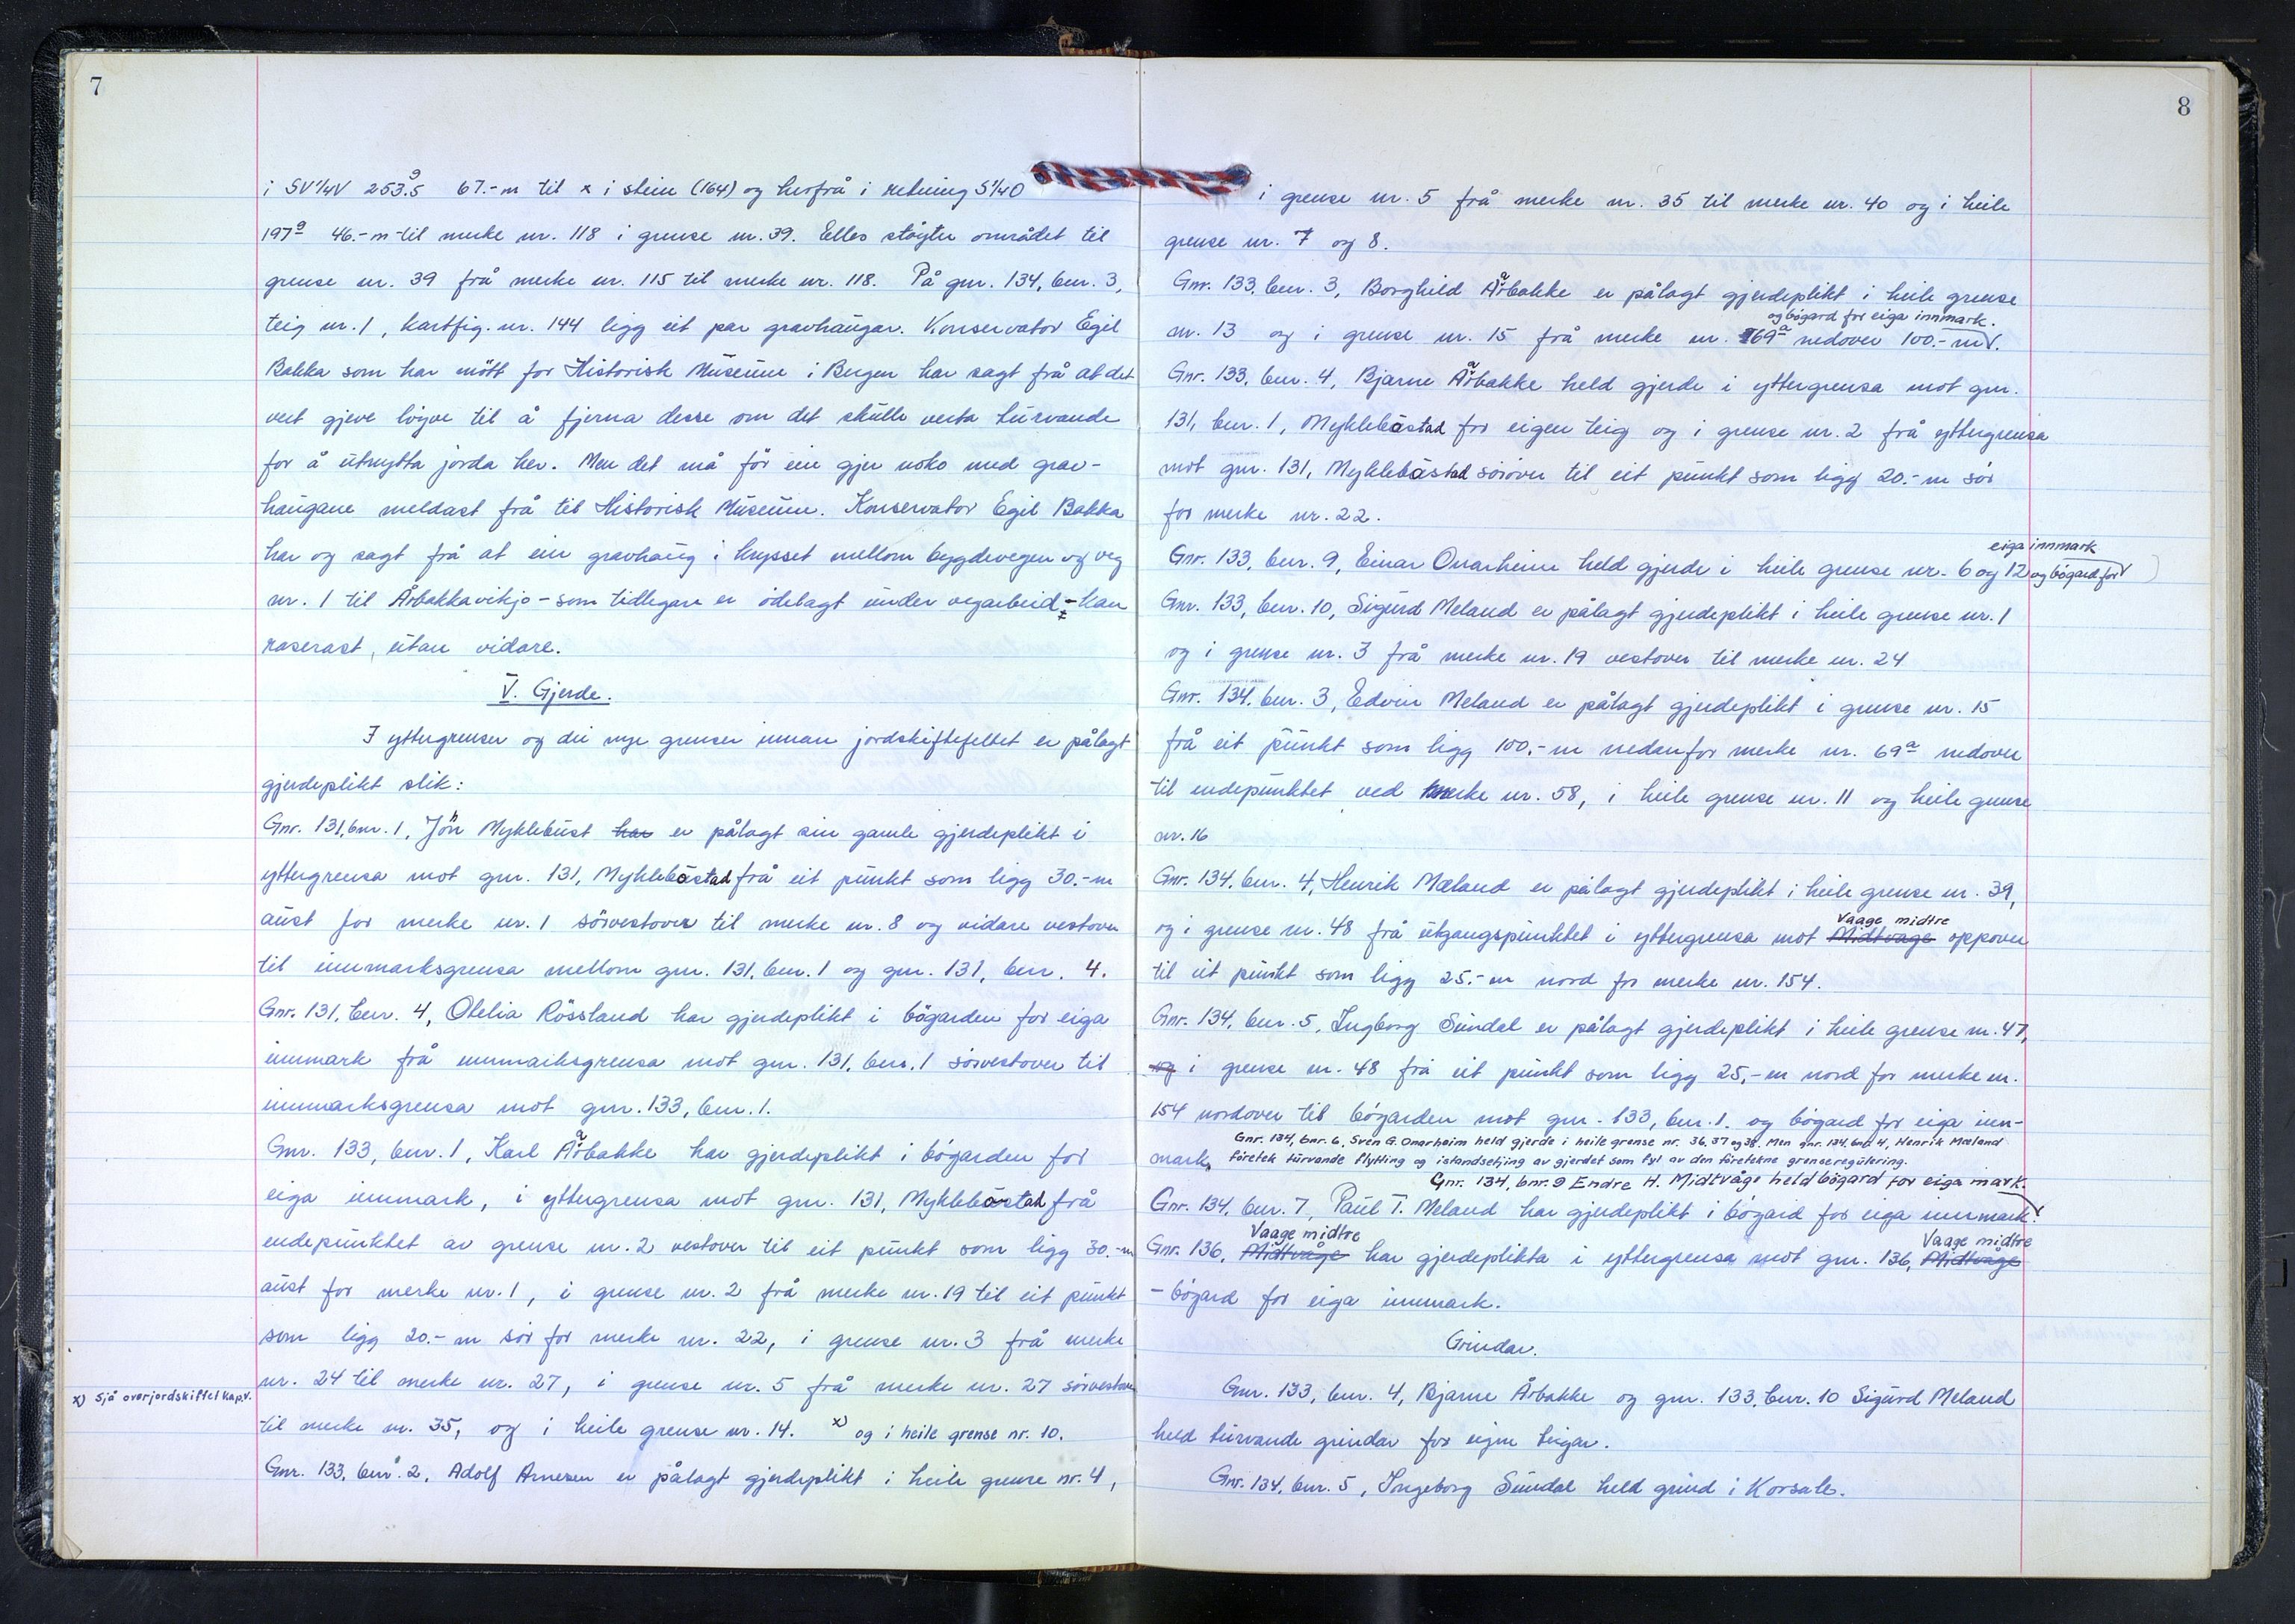 7
i SV1/4V 253.5g 67.-m til x i stein (164) og herfrå i retning S1/4O
197g 46.-m til merke nr. 118 i grense nr. 39. Elles støyter området til
grense nr. 39 frå merke nr. 115 til merke nr. 118. På gnr. 134, bnr. 3,
teig nr. 1, kartfig. nr. 144 ligg eit par gravhaugar. Konservator Egil
Bakka som har møtt for Historisk Museum i Bergen har sagt frå at det
vert gjeve løyve til å fjerna desse om det skulle verta turvande
for å utnytta jorda her. Men det må før ein gjer noko med grav-
haugane meldast frå til Historisk Museum. Konservator Egil Bakka
har og sagt frå at ein gravhaug i krysset mellom bygdevegen og veg
nr. 1 til Årbakkavikjo - som tidlegare er ödelagt under vegarbeid - kan
raserast, utan vidare.
V. Gjerde.
I yttergrenser og dei nye grenser innan jordskiftefeltet er pålagt
gjerdeplikt slik:
Gnr. 131, bnr. 1, Jon Myklebust har er pålagt sin gamle gjerdeplikt i
yttergrensa mot gnr. 131, Myklebøstad frå eit punkt som ligg 30.-m
aust for merke nr. 1 sörvestover til merke nr. 8 og vidare vestover
til innmarksgrensa mellom gnr. 131, bnr. 1 og gnr. 131, bnr. 4.
Gnr. 131, bnr. 4, Otelia Rössland har gjerdeplikt i bögarden for eiga
innmark frå innmarksgrensa mot gnr. 131, bnr. 1 sörvestover til
innmarksgrensa mot gnr. 133, bnr. 1.
Gnr. 133, bnr. 1, Karl Aarbakke har gjerdeplikt i bögarden for
eiga innmark, i yttergrensa mot gnr. 131, Myklebøstad frå
endepunktet av grense nr. 2 vestover til eit punkt som ligg 30.-m
aust for merke nr. 1, i grense nr. 2 frå merke nr. 19 til eit punkt
som ligg 20.-m sör for merke nr. 22, i grense nr. 3 frå merke
nr. 24 til merke nr. 27, i grense nr. 5 frå merke nr. 27 sörvestover
x) Sjå overjordskiftet kap. V.
til merke nr. 35, og i heile grense nr. 14. x) og i heile grense nr. 10.
Gnr. 133, bnr. 2, Adolf Arnesen er pålagt gjerdeplikt i heile grense nr. 4,
8
i grense nr. 5 frå merke nr. 35 til merke nr. 40 og i heile
grense nr. 7 og 8.
Gnr. 133, bnr. 3, Borghild Aarbakke er pålagt gjerdeplikt i heile grense
og bögard for eiga innmark.
nr. 13 og i grense nr. 15 frå merke nr. 69a nedover 100.-m.
Gnr. 133, bnr. 4, Bjarne Aarbakke held gjerde i yttergrensa mot gnr.
131, bnr. 1, Myklebøstad for eigen teig og i grense nr. 2 frå yttergrensa
mot gnr. 131, Myklebøstad sörover til eit punkt som ligg 20.-m sör
for merke nr. 22.
eiga innmark
Gnr. 133, bnr. 9, Einar Onarheim held gjerde i heile grense nr. 6 og 12 og bögard for
Gnr. 133, bnr. 10, Sigurd Meland er pålagt gjerdeplikt i heile grense nr. 1
og i grense nr. 3 frå merke nr. 19 vestover til merke nr. 24
Gnr. 134, bnr. 3, Edvin Meland er pålagt gjerdeplikt i grense nr. 15
frå eit punkt som ligg 100.-m nedanfor merke nr. 69a nedover
til endepunktet ved merke nr. 58, i heile grense nr. 11 og heile grense
nr. 16
Gnr. 134, bnr. 4, Henrik Mæland er pålagt gjerdeplikt i heile grense nr. 39,
Vaage midtre
og i grense nr. 48 frå utgangspunktet i yttergrensa mot Midtvage oppover
til eit punkt som ligg 25.-m nord for merke nr. 154.
Gnr. 134, bnr. 5, Ingborg Sundal er pålagt gjerdeplikt i heile grense nr. 47,
og i grense nr. 48 frå eit punkt som ligg 25.-m nord for merke nr.
154 nordover til bögarden mot gnr. 133, bnr. 1. og bögard for eiga inn-
Gnr. 134, bnr. 6, Sven G. Onarheim held gjerde i heile grense nr. 36, 37 og 38. Men gnr. 134, bnr. 4, Henrik Mæland
mark, företek turvande flytting og istandsetjing av gjerdet som fyl av den företekne grenseregulering.
Gnr. 134, bnr. 9 Endre H. Midtvåge held bögard for eiga mark.
Gnr. 134, bnr. 7, Paul T. Meland har gjerdeplikt i bögard for eiga innmark.
Vaage midtre Vaage midtre
Gnr. 136, Midtvåge har gjerdeplikta i yttergrensa mot gnr. 136, Midtvåge
- bögard for eiga innmark.
Grindar.
Gnr. 133, bnr. 4, Bjarne Årbakke og gnr. 133, bnr. 10 Sigurd Meland
held turvande grindar for eigne teigar.
Gnr. 134, bnr. 5, Ingeborg Sundal held grind i Korsale.